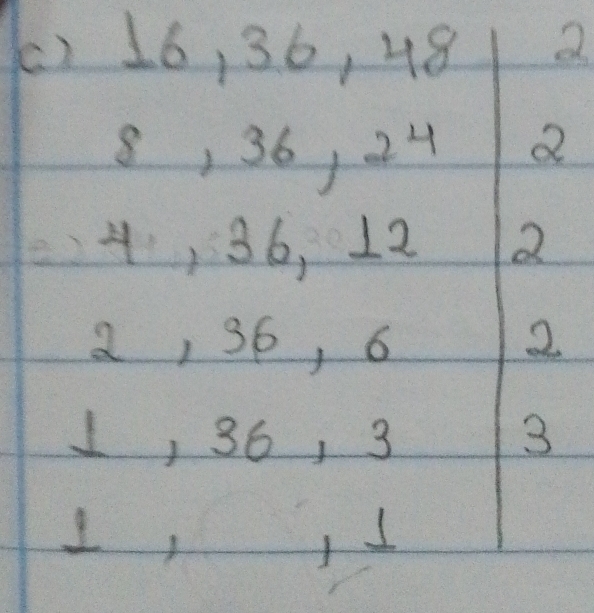 c) 16, 36, 48 | 2
8, 36, 24 | 2
4, 36, 12 | 2
2, 36, 6 | 2
1, 36, 3 | 3
1, , 1 |